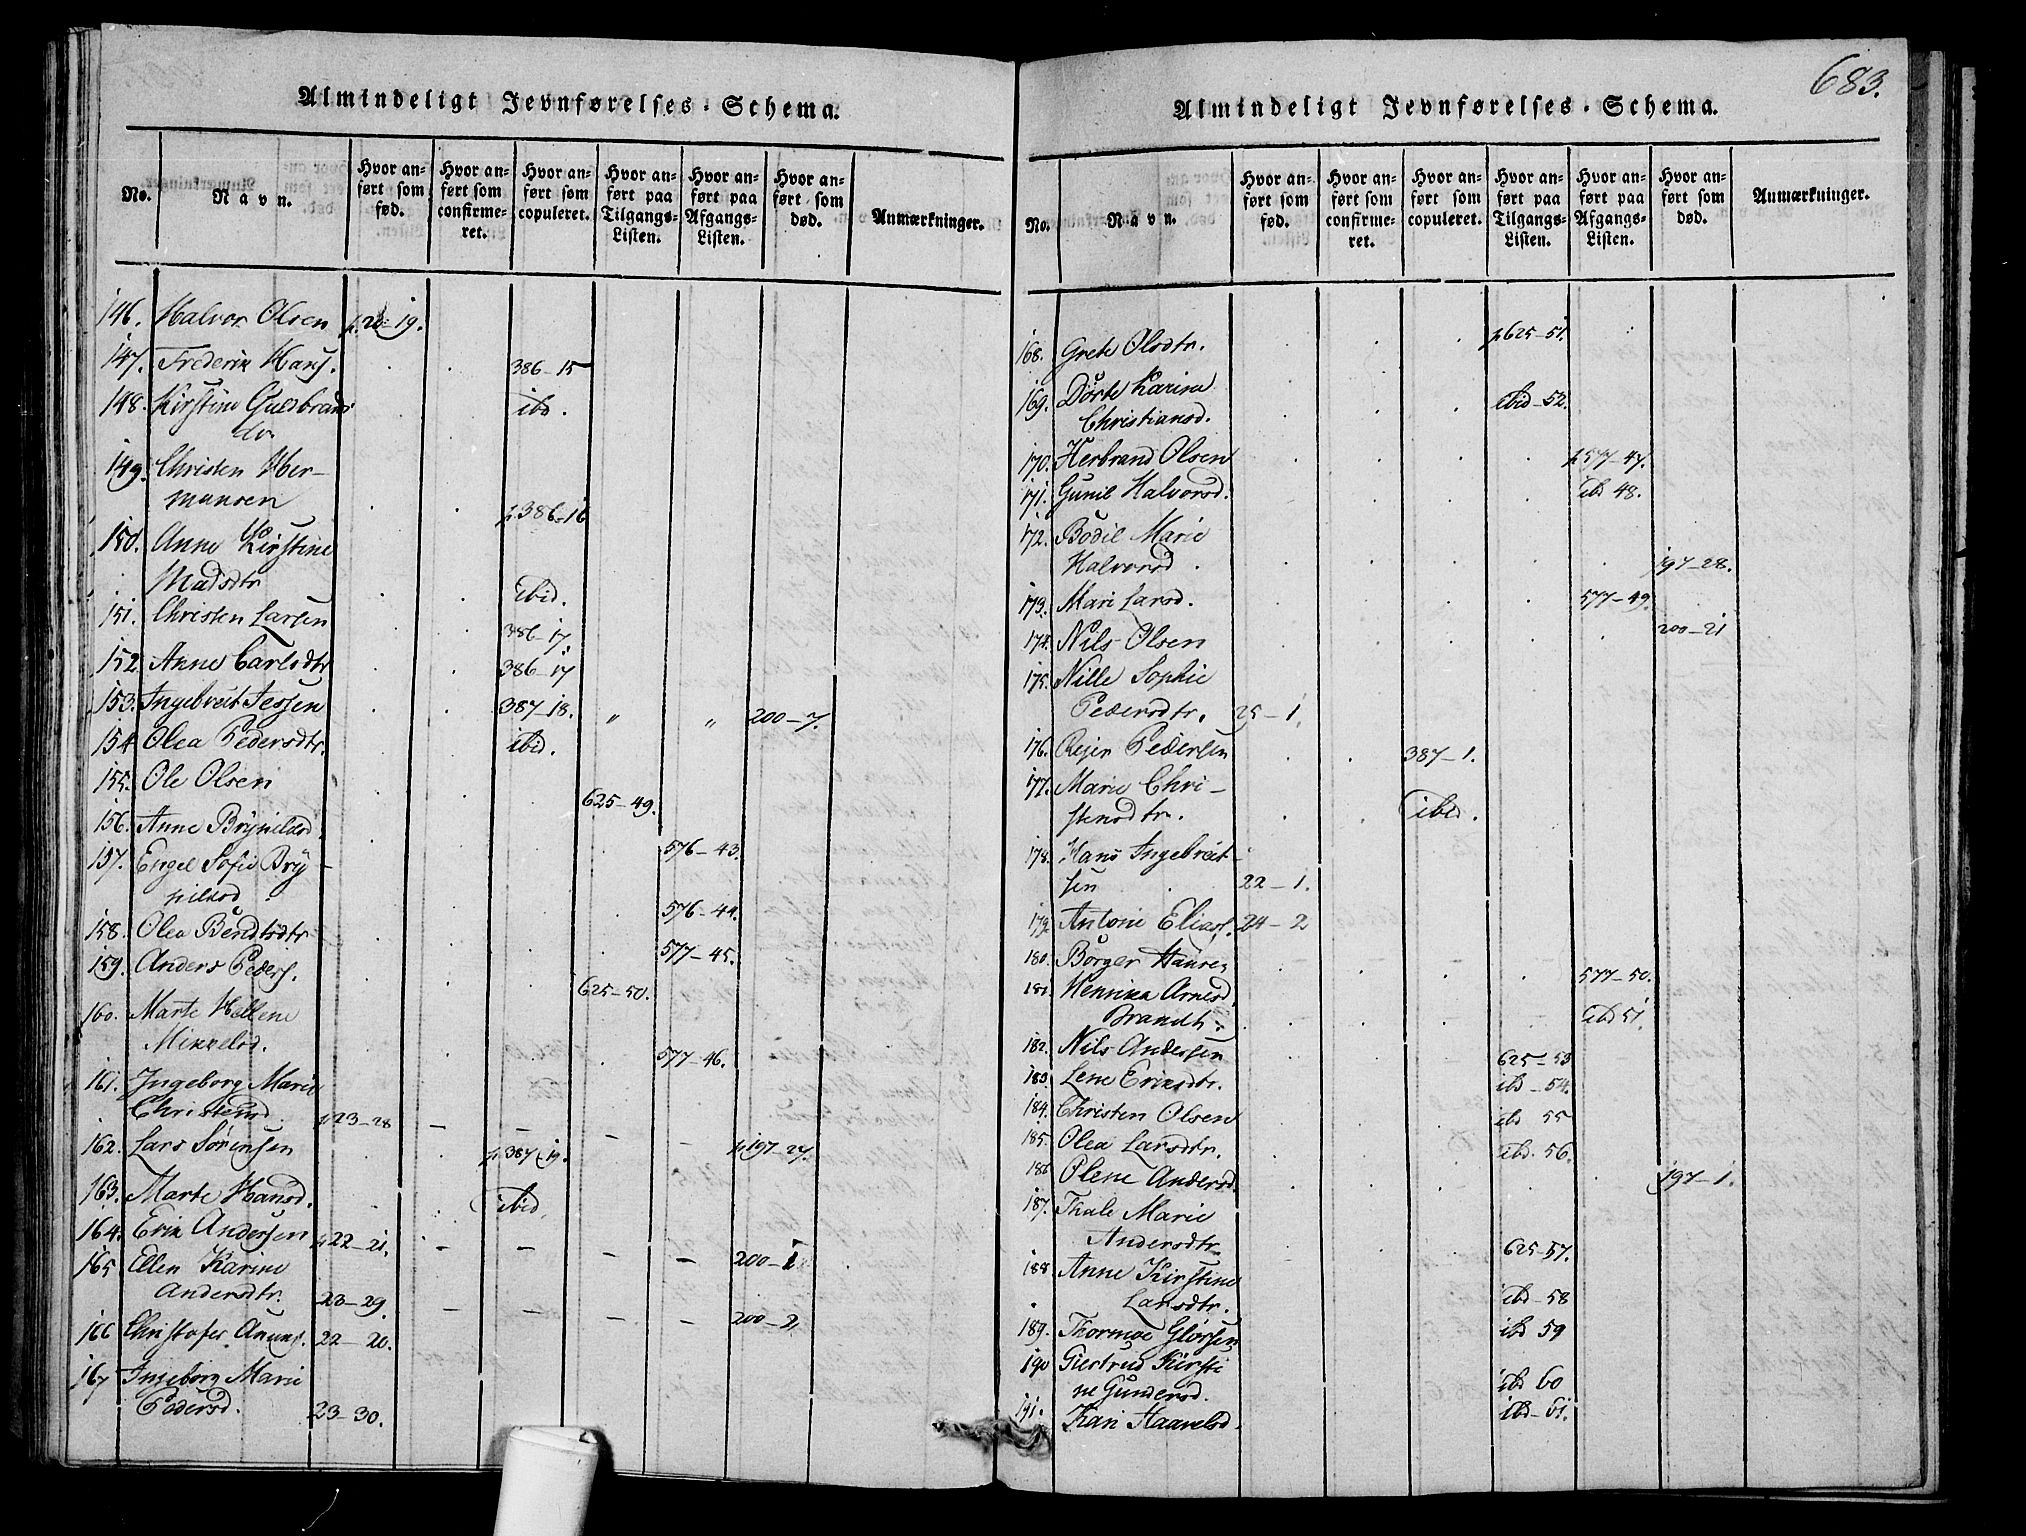 Almindeligt Jevnførelses-Schema.
No.
Navn.
Hvor anført som fød.
Hvor anført som confirmeret.
Hvor anført som copuleret.
Hvor anført paa Tilgangs-Listen.
Hvor anført paa Afgangs-Listen.
Hvor anført som død.
Anmærkninger.
146. Halvor Olsen p. 20-19.
147. Frederik Hans. 386-15
148. Kirstine Guldbrands ibd.
dr.
149. Christen Her-
mansen p. 386-16
150. Anne Kirstine
Madsdtr ibid.
151. Christen Larsen 386-17.
152 Anne Carlsdtr 386-17
153. Ingebreit Jessen 387-18. " " 200-7.
154 Olea Pedersdtr. ibid.
155. Ole Olsen 625-49.
156. Anne Brynildsd. 576-43.
157. Engel Sofie Bry-
nildsd. 576-44.
158. Olea Bendtsdtr 577-45.
159. Anders Peders. 625-50.
160. Marte Hellene
Mikkelsd. 577-46.
161. Ingeborg Marie
Christensd. p. 23-28 - - - - p. 197-27.
162. Lars Sørensen p. 387-19.
163. Marte Hansd. ibid.
164. Erik Andersen p. 22-21. - - - - 200-1
165 Ellen Karine
Andersdtr. 23-29. - - - - 200-2
166 Christofer Amunds. 22-20.
167 Ingeborg Marie
Pedersd. 23-30.
683.
Almindeligt Jevnførelses-Schema.
No.
Navn.
Hvor anført som fød.
Hvor anført som confirmeret.
Hvor anført som copuleret.
Hvor anført paa Tilgangs-Listen.
Hvor anført paa Afgangs-Listen.
Hvor anført som død.
Anmærkninger.
168. Grete Olsdtr. p. 625-51.
169. Dorte Karine
Christiansd. ibid-52.
170. Herbrand Olsen p. 577-47.
171. Gunil Halvorsd. ibd 48.
172. Bodil Marie
Halvorsd. 197-28.
173. Mari Larsd. 577-49.
174. Nils Olsen 200-21
175. Nille Sophie
Pedersdtr. 25-1.
176. Rejer Pedersen 387-1.
177. Marie Chri-
stensdtr. ibid.
178. Hans Ingebreit-
sen 22-1.
179. Antonie Elias. 24-2
180. Børger 577-50.
181. Henrikka Arnesd.
Brandt. ibd 51.
182. Nils Andersen 625-53
183. Lene Eriksdtr. ibd-54.
184. Christen Olsen ibd 55
185. Olea Larsdtr. ibd. 56.
186 Olene Andersd. 197-1.
187. Thale Marie
Andersdtr. 625-57.
188. Anne Kirstine
Larsdtr. ibd-58
189. Thormoe Glørsen ibd 59
190 Giertrud Kirsti
ne Gundersd. ibd 60
191. Kari Haavelsd. ibd-61.